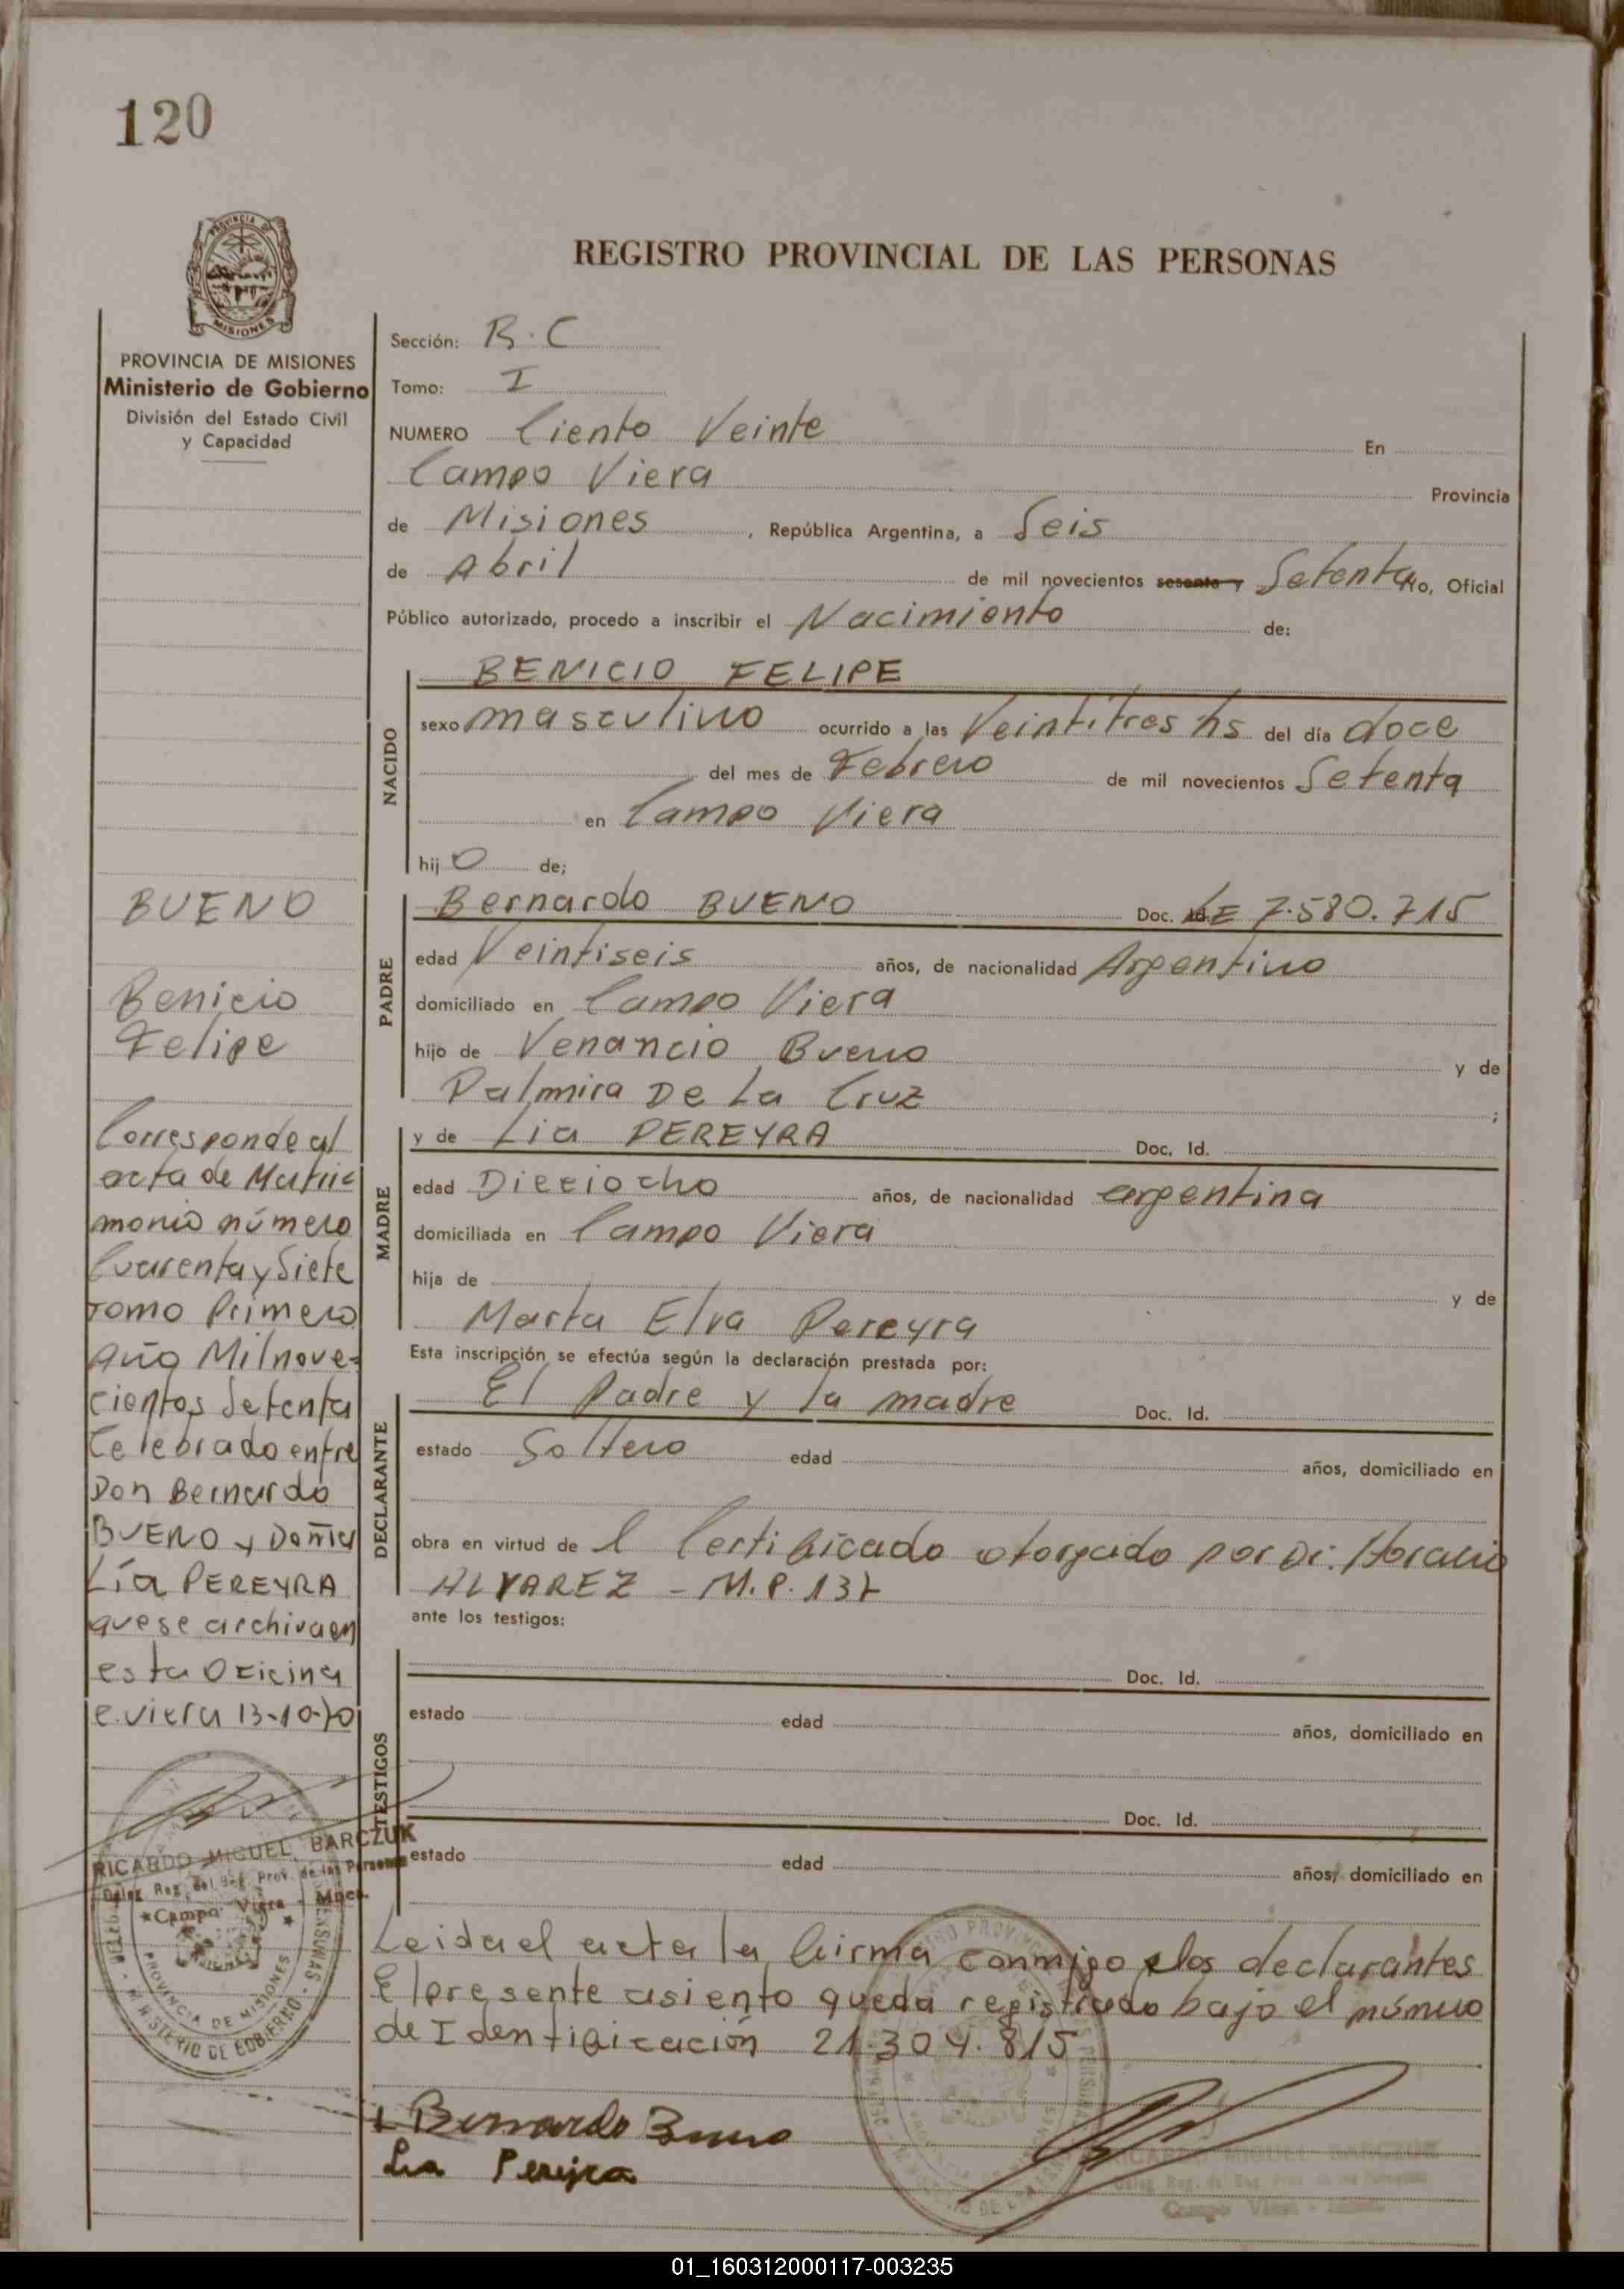 120
MISIONES
PROVINCIA DE MISIONES
Ministerio de Gobierno
División del Estado Civil
y Capacidad
REGISTRO PROVINCIAL DE LAS PERSONAS
Sección: B.C
Tomo: I
NUMERO Ciento Veinte En
Campo Viera Provincia
de Misiones, República Argentina, a Seis
de Abril de mil novecientos sesenta y Setenta, Oficial
Público autorizado, procedo a inscribir el Nacimiento de:
NACIDO
BENICIO FELIPE
sexo masculino ocurrido a las Veintitres hs del día doce
del mes de Febrero de mil novecientos Setenta
en Campo Viera
hijo de;
PADRE
Bernardo BUENO Doc. LE 7.580.715
edad Veintiseis años, de nacionalidad Argentino
domiciliado en Campo Viera
hijo de Venancio Bueno y de
Palmira De La Cruz ;
MADRE
y de Lia PEREYRA Doc. Id.
edad Dieciocho años, de nacionalidad argentina
domiciliada en Campo Viera
hija de y de
Marta Elva Pereyra
Esta inscripción se efectúa según la declaración prestada por:
DECLARANTE
El Padre y la madre Doc. Id.
estado Soltero edad años, domiciliado en
obra en virtud del Certificado otorgado por Dr. Horacio
ALVAREZ - M.P. 137
ante los testigos:
TESTIGOS
Doc. Id.
estado edad años, domiciliado en
Doc. Id.
estado edad años, domiciliado en
Leida el acta la firma conmigo los declarantes
El presente asiento queda registrado bajo el número
de Identificación 21.304.815
Bernardo Bueno
Lia Pereyra
RICARDO MIGUEL BARCZUK
BUENO
Benicio
Felipe
Corresponde al
acta de Matri
monio número
Cuarenta y Siete
Tomo Primero
Año Milnove-
cientos Setenta
Celebrado entre
Don Bernardo
BUENO y Doña
Lía PEREYRA
que se archiva en
esta Oficina
C. Viera 13-10-70
RICARDO MIGUEL BARCZUK
Deleg. Reg. del Reg. Prov. de las Personas
Campo Viera - Mnes.
PROVINCIA DE MISIONES
MINISTERIO DE GOBIERNO
01_160312000117-003235